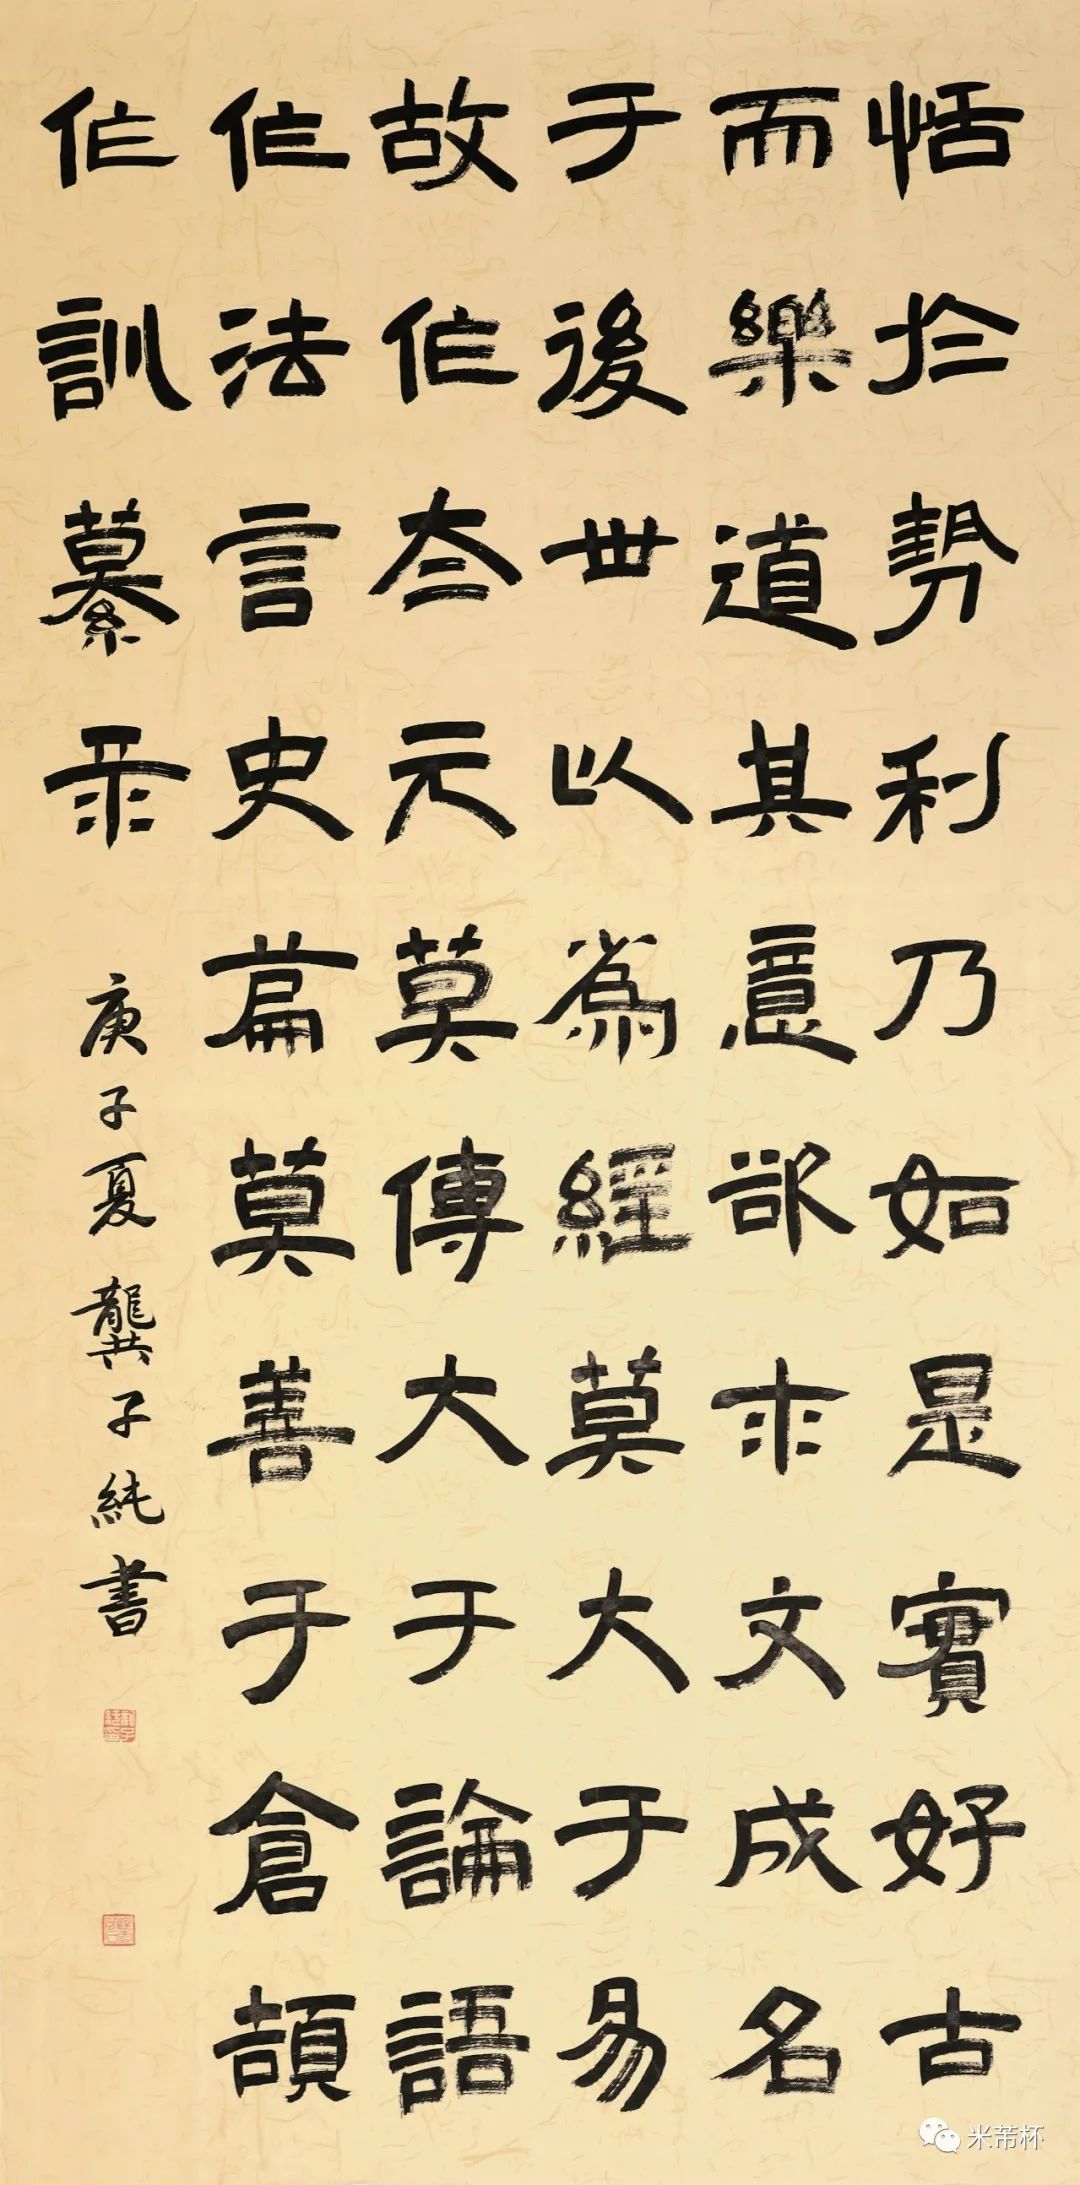 恬於勢利乃如是實好古
而樂道其意欲求文成名
于後世以為經莫大于易
故作夳元莫傳大于論語
作法言史篇莫善于倉頡
作訓纂
庚子夏龔子純書
米芾杯